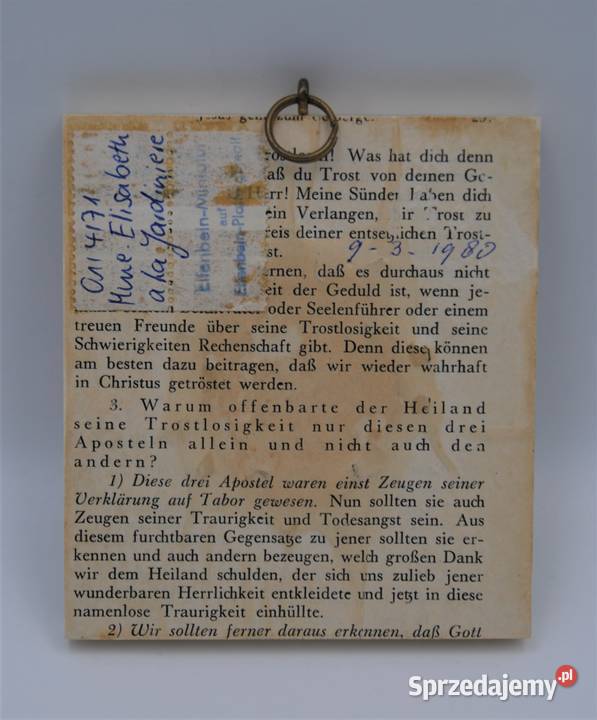 Jesus geht zum Ölberge. 29.
Was hat dich denn
daß du Trost von deinen Ge-
Herr! Meine Sünden haben dich
ein Verlangen, dir Trost zu
Preis deiner entsetzlichen Trost-
9-3-1980
daß es durchaus nicht
der Geduld ist, wenn je-
oder Seelenführer oder einem
treuen Freunde über seine Trostlosigkeit und seine
Schwierigkeiten Rechenschaft gibt. Denn diese können
am besten dazu beitragen, daß wir wieder wahrhaft
in Christus getröstet werden.
3. Warum offenbarte der Heiland
seine Trostlosigkeit nur diesen drei
Aposteln allein und nicht auch den
andern?
1) Diese drei Apostel waren einst Zeugen seiner
Verklärung auf Tabor gewesen. Nun sollten sie auch
Zeugen seiner Traurigkeit und Todesangst sein. Aus
diesem furchtbaren Gegensatze zu jener sollten sie er-
kennen und auch andern bezeugen, welch großen Dank
wir dem Heiland schulden, der sich uns zulieb jener
wunderbaren Herrlichkeit entkleidete und jetzt in diese
namenlose Traurigkeit einhüllte.
2) Wir sollten ferner daraus erkennen, daß Gott
4171
Mme. Elisabeth
a la Jardiniere
Elfenbein-Miniaturen
auf
Sprzedajemy.pl